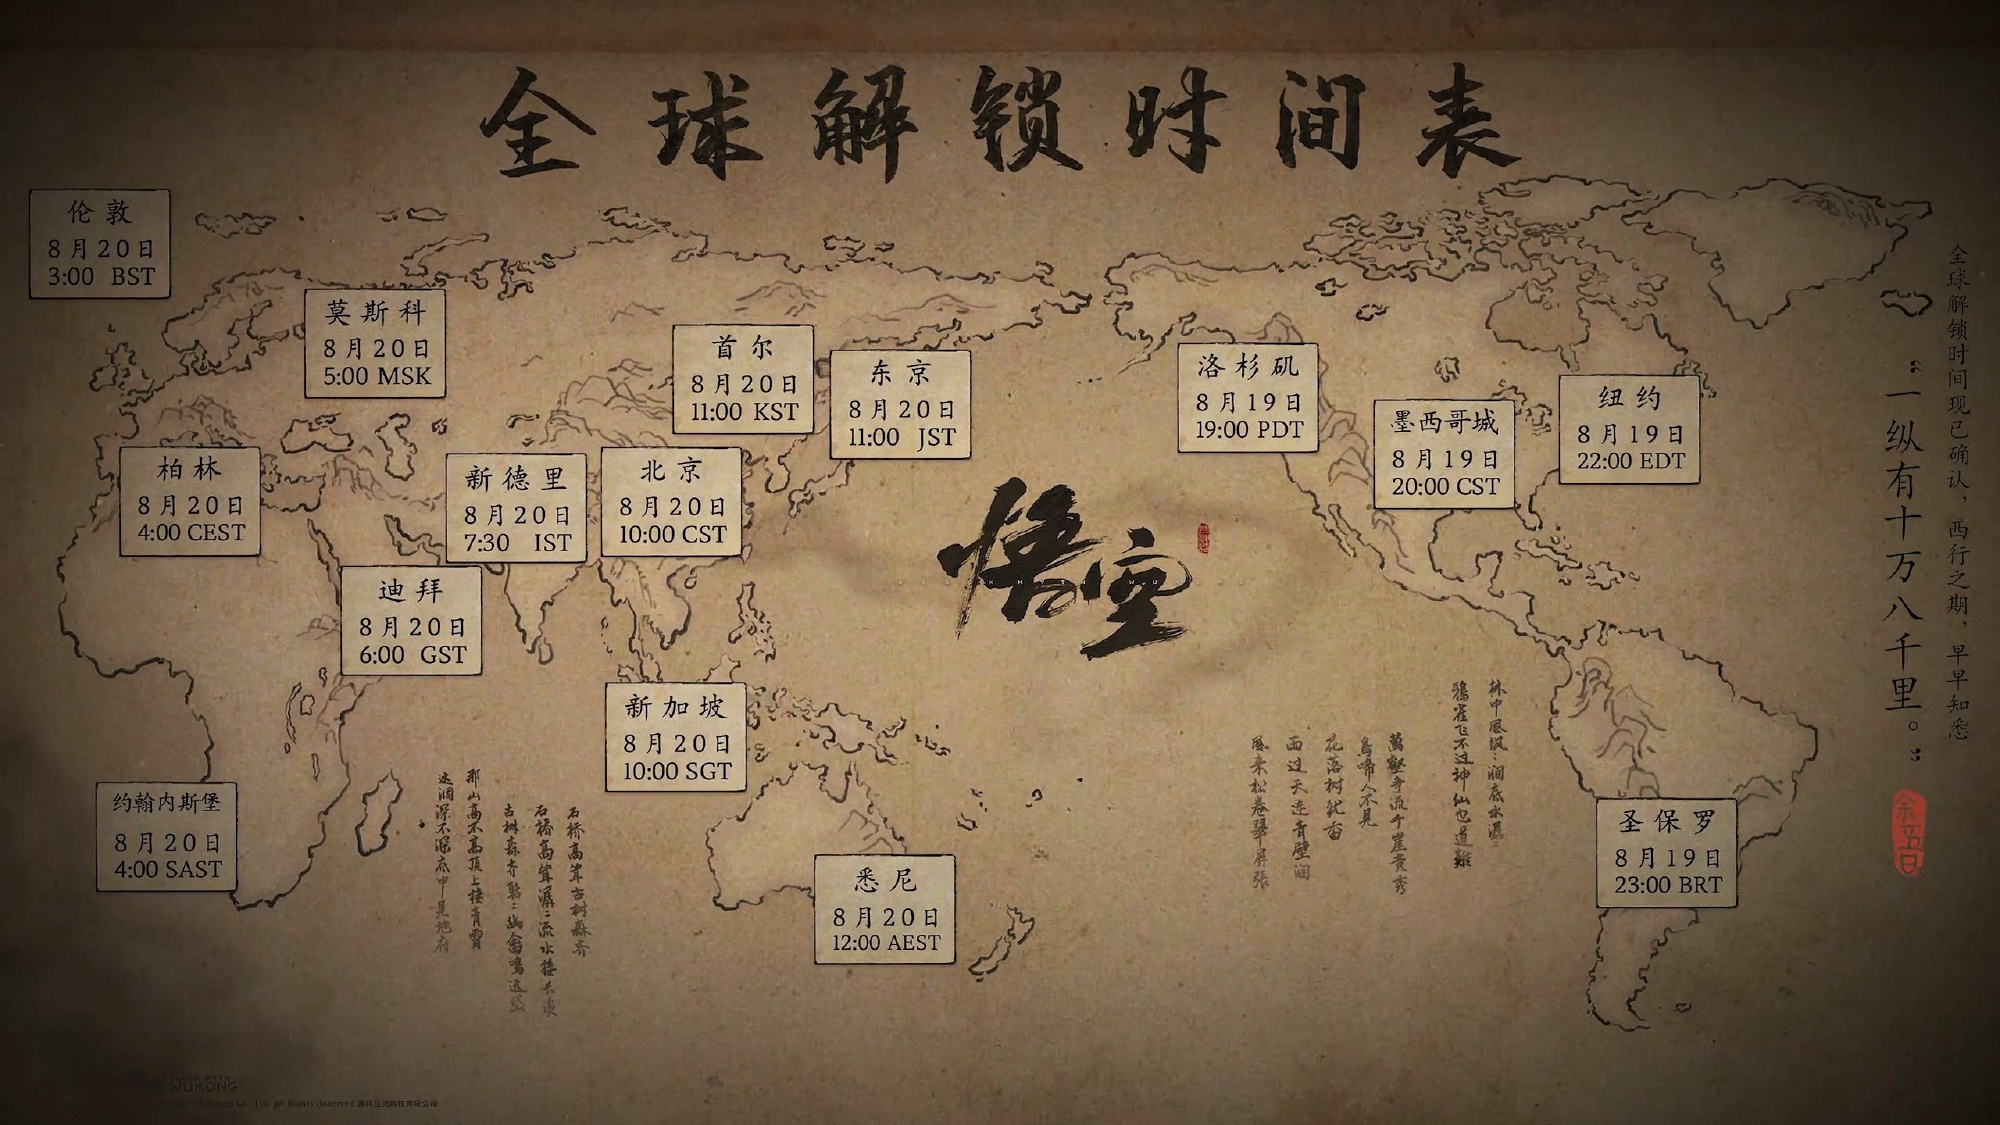 全球解锁时间表
伦敦
8月20日
3:00 BST
莫斯科
8月20日
5:00 MSK
首尔
8月20日
11:00 KST
东京
8月20日
11:00 JST
洛杉矶
8月19日
19:00 PDT
墨西哥城
8月19日
20:00 CST
纽约
8月19日
22:00 EDT
柏林
8月20日
4:00 CEST
新德里
8月20日
7:30 IST
北京
8月20日
10:00 CST
迪拜
8月20日
6:00 GST
新加坡
8月20日
10:00 SGT
约翰内斯堡
8月20日
4:00 SAST
悉尼
8月20日
12:00 AEST
圣保罗
8月19日
23:00 BRT
悟空
全球解锁时间现已确认，西行之期，早早知悉
“一纵有十万八千里。”
林中风飒飒涧底水潺潺
鸦雀飞不过神仙也道难
萬壑争流千崖竞秀
鸟啼人不见
花落树犹香
雨过天连青壁润
风来松卷翠屏張
石桥高耸古树森齐
石桥高耸潺潺流水接长溪
那山高不高顶上接青霄
这涧深不深底中見地府
WUKONG
All Rights Reserved